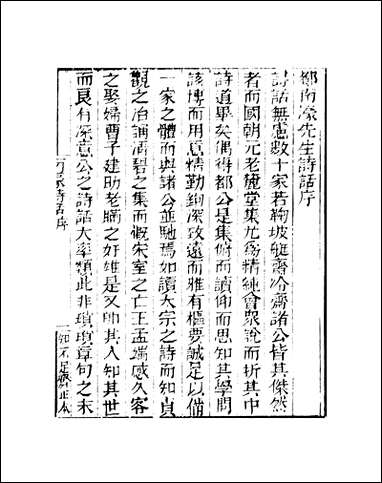 都南濠先生詩話序
詩話無慮數十家若鞠坡艇齋冷齋諸公皆其傑然
者而國朝元老麓堂集尤為精純會眾說而折其中
詩道畢矣偶得都公是集俯而讀仰而思知其學問
該博而用意精勤鉤深致遠而雅有樞要誠足以備
一家之體而與諸公並馳焉如讀太宗之詩而知貞
觀之治誦清碧之集而慨宋室之亡王孟端感久客
之娶婦曹子建助老瞞之奸雄是又卽其人知其世
而良有深意公之詩話大率類此非瑣瑣章句之末
南濠詩話序
一
知不足齋正本